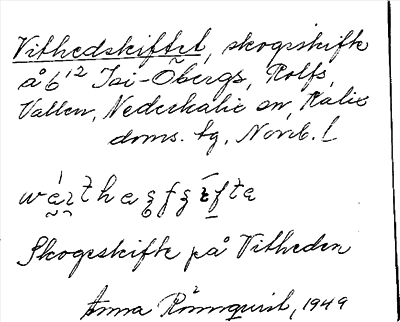 Vithedskiftet, skogsskifte
å 6¹² Isi-Öbergs, Rolfs,
Vallen, Nederkalix sn, Kalix
doms. tg, Norrb. L
Skogsskifte på Vitheden
Anna Rönnquist, 1949